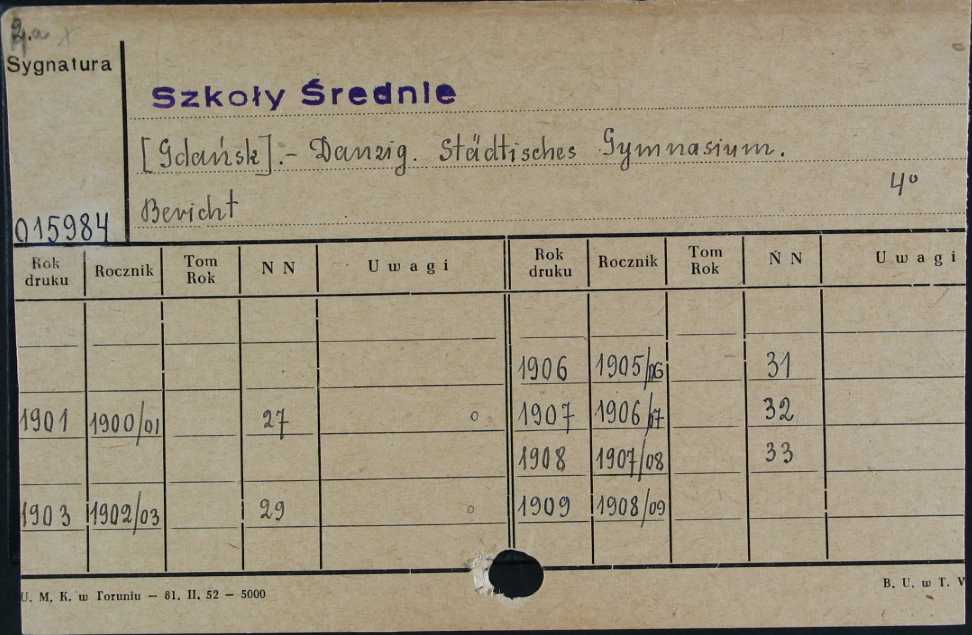 2.a x
Sygnatura
Szkoły Średnie
[Gdańsk].- Danzig. Städtisches Gymnasium.
4°
Bericht
015984
Rok druku Rocznik Tom Rok N N Uwagi Rok druku Rocznik Tom Rok N N Uwagi
1906 1905/06 31
1901 1900/01 27 o 1907 1906/07 32
1908 1907/08 33
1903 1902/03 29 o 1909 1908/09
U. M. K. w Toruniu — 61. II. 52 — 5000
B. U. w T. V